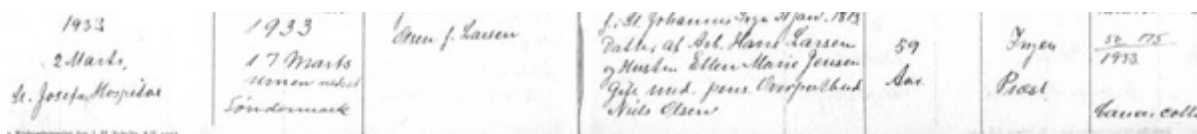 1933
2 Marts.
St. Josefs Hospital
1933
17 Marts
urnen nedsat
Søndermark
f. Larsen
f. St. Johannes Sogn
Datter af Arb. Hans Larsen
og Hustru Ellen Marie Jensen
Gift med. pens. Overportbud
Niels Olsen
59
Aar
Ingen
Præst
175
1933